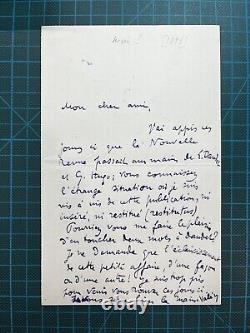 Mon cher ami,
J'ai appris ces
jours ci que la Nouvelle
Revue passait aux mains de L. Daudet
et G. Hugo; vous connaissez
l'étrange situation où je suis
vis à vis de cette publication, ni
inséré, ni restitué (restitutus)
Pourriez vous me faire le plaisir
d'en toucher deux mots à Daudet?
Je ne demande que l'éclaircissement
de cette petite affaire, d'une façon
ou d'une autre! Je suis trop pris
pour venir vous trouver ces jours ci